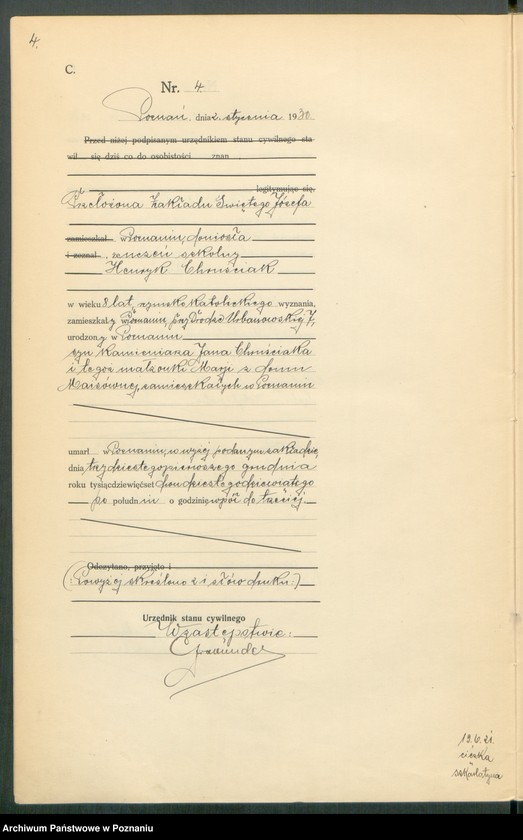 4.
C.
Nr. 4
Poznań, dnia 2. stycznia 1930
Przed niżej podpisanym urzędnikiem stanu cywilnego sta
wił się dziś co do osobistości znan
legitymując się,
Przełożona Zakładu Świętego Józefa
zamieszkał w Poznaniu, doniosła
i zeznał, że uczeń szkolny
Henryk Chruściak
w wieku 8 lat, rzymsko katolickiego wyznania,
zamieszkały w Poznaniu, przy Drodze Urbanowskiej 7,
urodzony w Poznaniu
syn kamieniarza Jana Chruściaka
i tegoż małżonki Marji z domu
zamieszkałych w Poznaniu
umarł w Poznaniu, w wyżej podanym zakładzie,
dnia trzydziestego pierwszego grudnia
roku tysiącdziewięćset dwudziestego dziewiątego
po południu o godzinie wpół do trzeciej
Odczytano, przyjęto i
(:Powyżej skreślono 21 słów druku:)
Urzędnik stanu cywilnego
W zastępstwie:
19.6.21.
szkarlatyna
Archiwum Państwowe w Poznaniu